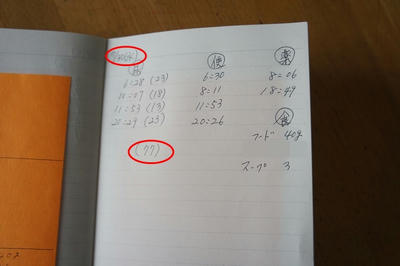 便 薬
6=28 (23) 6=30 8=06
(18) 8=11 18=49
11=53 (13) 11=53 食
20=29 (23) 20=26
フード 40g
(77)
スープ 3